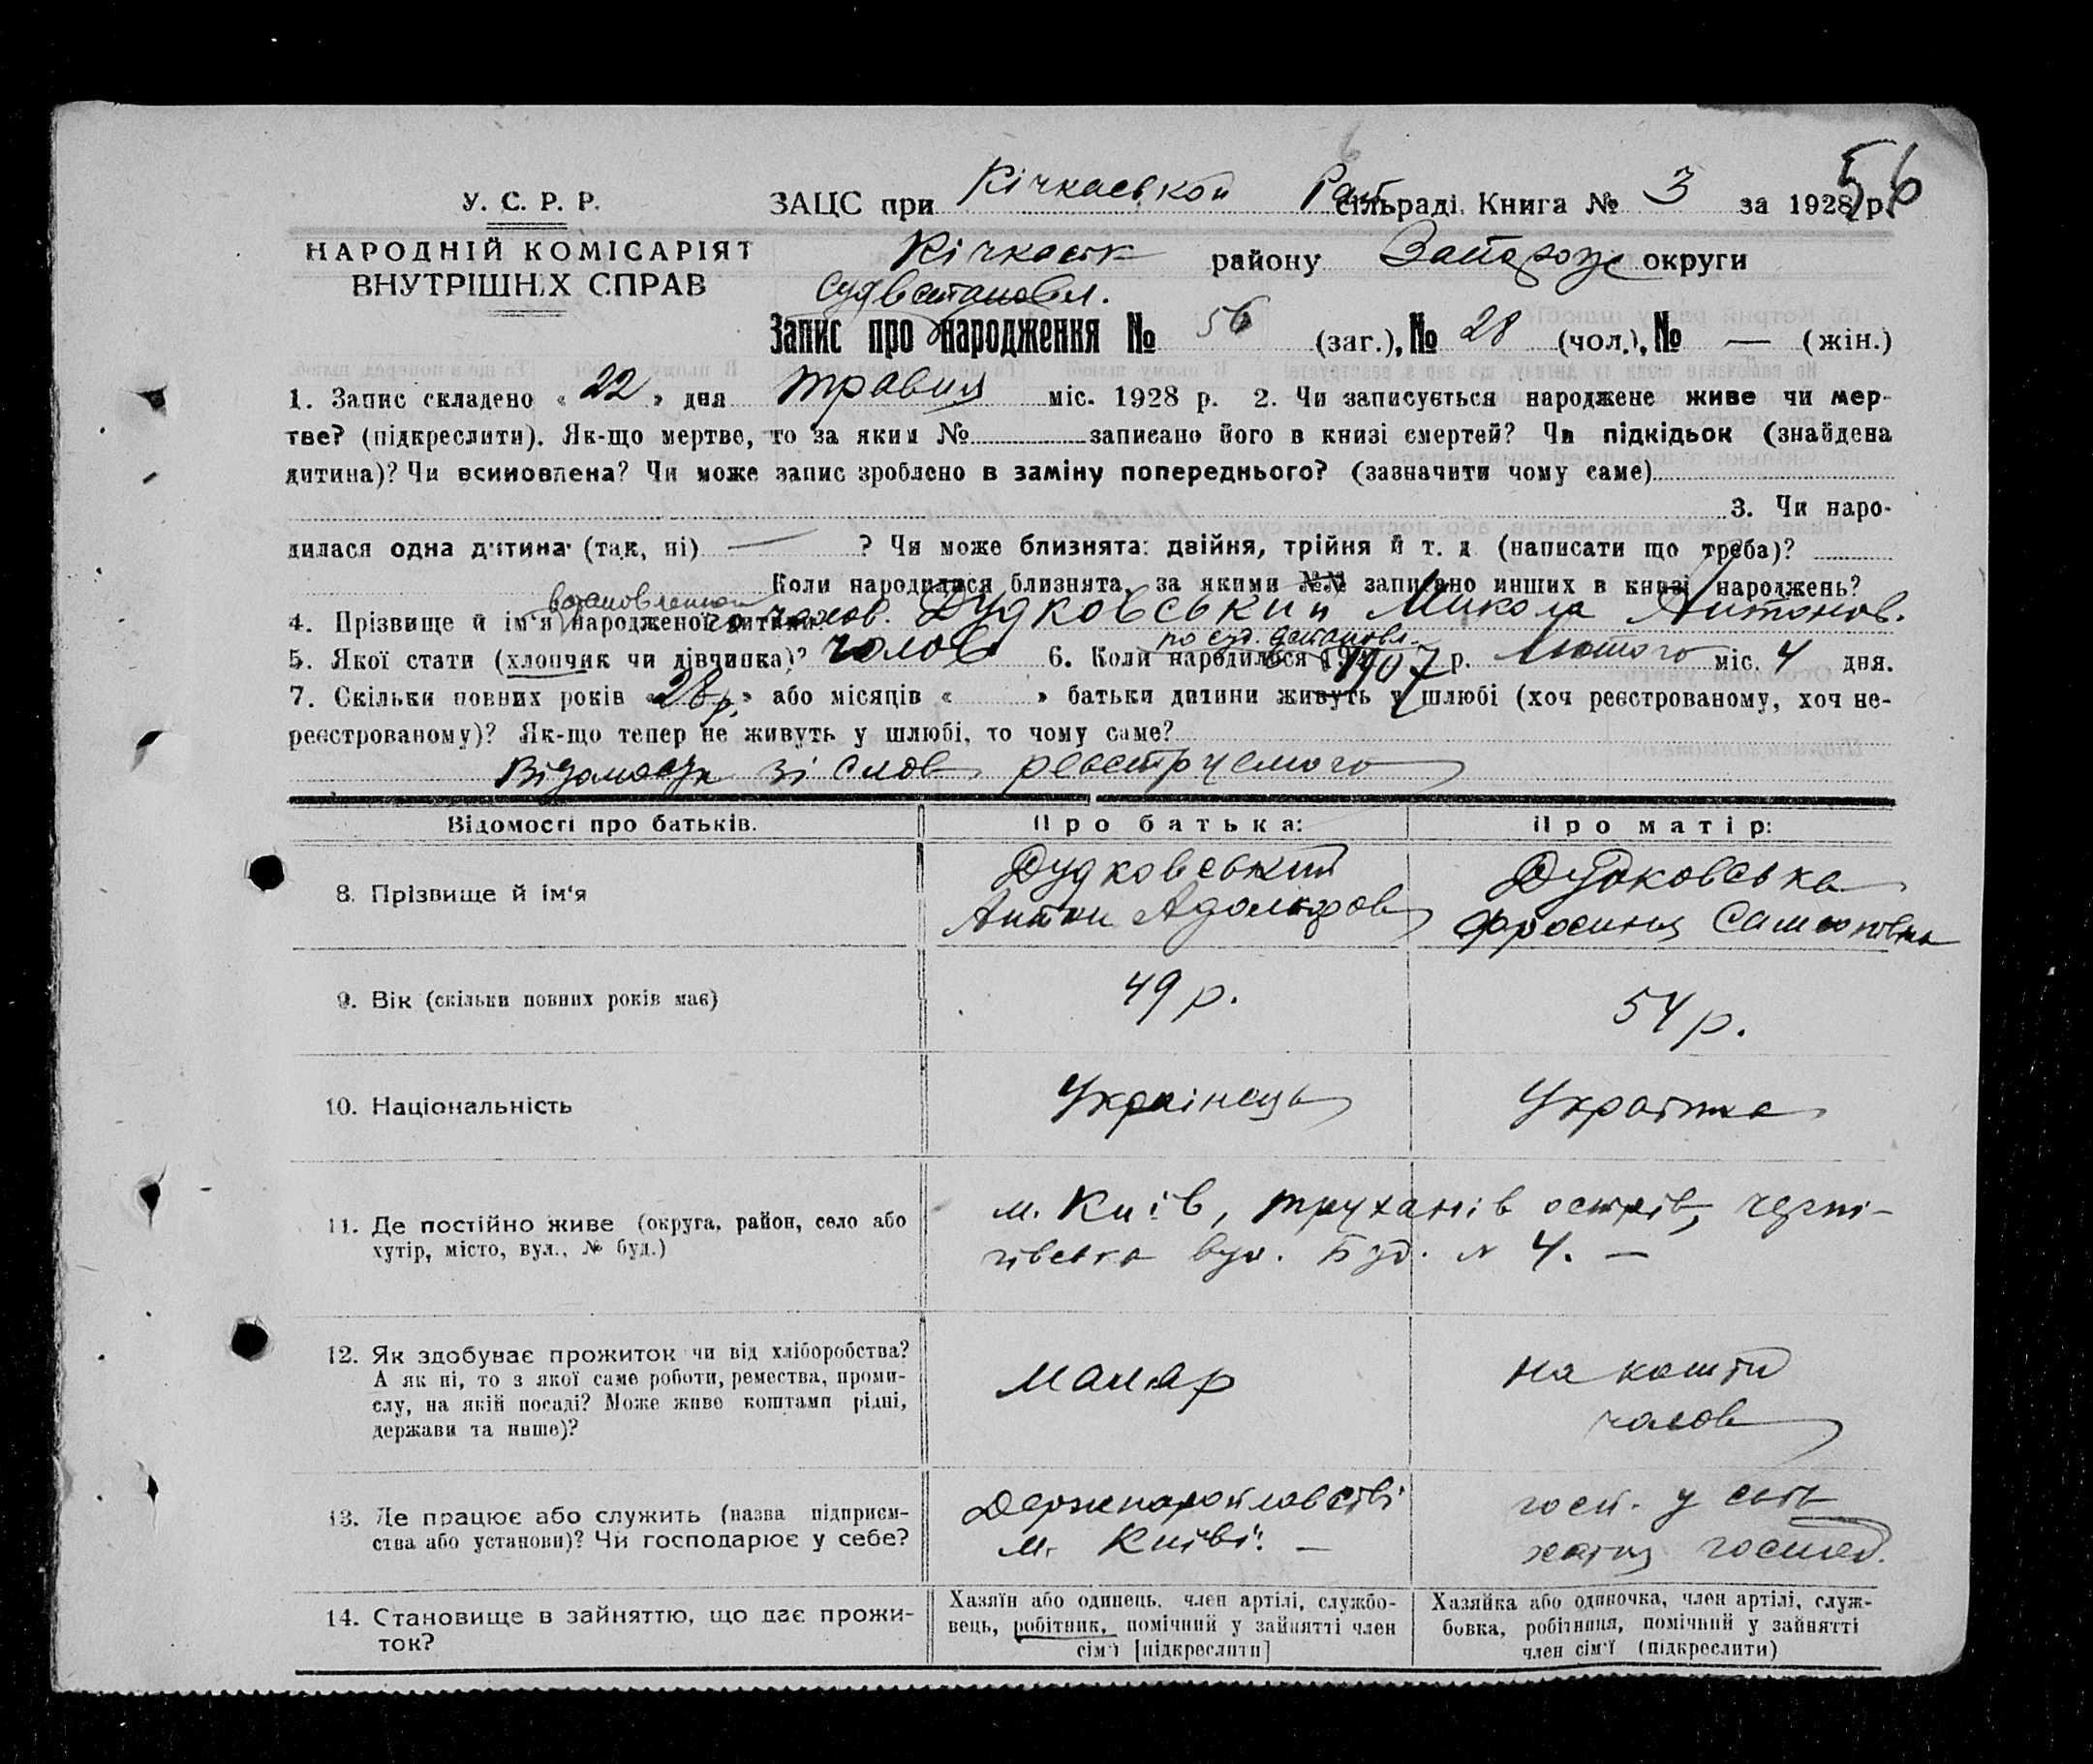 56
У. С. Р. Р.
НАРОДНІЙ КОМІСАРІЯТ
ВНУТРІШНІХ СПРАВ
ЗАЦС при Кічкаській Рай сільраді. Книга № 3 за 1928 р.
Кічкаськ району Запорож округи
судвстановл.
Запис про народження № 56 (заг.), № 28 (чол.), № — (жін.)
1. Запис складено « 22 » дня травня міс. 1928 р. 2. Чи записується народжене живе чи мер-
тве? (підкреслити). Як-що мертве, то за яким № записано його в книзі смертей? Чи підкідьок (знайдена
дитина)? Чи всиновлена? Чи може запис зроблено в заміну попереднього? (зазначити чому саме)
3. Чи наро-
дилася одна дитина (так, ні) — ? Чи може близнята: двійня, трійня й т. д. (написати що треба)?
Коли народилися близнята, за якими №№ записано инших в книзі народжень?
встановленної
4. Прізвище й ім'я народженої дитини: чолов. Дудковський Микола Антонов.
по суд. встановл.
5. Якої стати (хлопчик чи дівчинка)? чолов 6. Коли народилося 1907 р. Лютого міс. 4 дня.
7. Скільки повних років «28 р.» або місяців « » батьки дитини живуть у шлюбі (хоч реєстрованому, хоч не-
реєстрованому)? Як-що тепер не живуть у шлюбі, то чому саме?
Відомості зі слов реєструємого
Відомості про батьків. Про батька: Про матір:
8. Прізвище й ім'я
Дудковський
Антон Адольфов
Дудковська
Фросиня Самсонівна
9. Вік (скільки повних років має) 49 р. 54 р.
10. Національність Українець Українка
11. Де постійно живе (округа, район, село або
хутір, місто, вул., № буд.)
м. Київ, Труханів острів, Черні-
гівська вул. Буд. № 4. —
12. Як здобуває прожиток чи від хліборобства?
А як ні, то з якої саме роботи, ремества, проми-
слу, на якій посаді? Може живе коштами рідні,
держави та инше)?
маляр
на кошти
чолов
13. Де працює або служить (назва підприєм-
ства або установи)? Чи господарює у себе?
Держпароплавстві
м. Київі. —
госп. у своїй
хатня господ.
14. Становище в зайняттю, що дає прожи-
ток?
Хазяїн або одинець, член артілі, службо-
вець, робітник, помічний у зайнятті член
сім'ї [підкреслити]
Хазяйка або одиночка, член артілі, служ-
бовка, робітниця, помічний у зайнятті
член сім'ї (підкреслити)